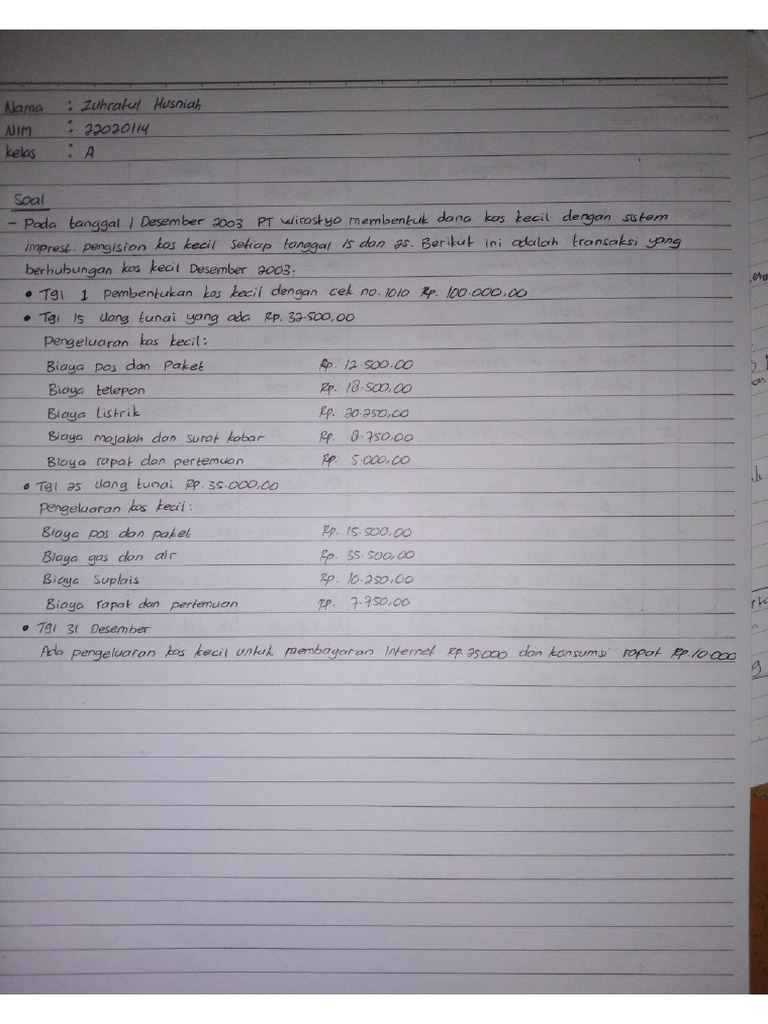 Nama : Zuhratul Husniah
NIM : 22020114
kelas : A
Soal
- Pada tanggal 1 Desember 2003 PT wirastyo membentuk dana kas kecil dengan sistem
imprest. pengisian kas kecil setiap tanggal 15 dan 25. Berikut ini adalah transaksi yang
berhubungan kas kecil Desember 2003:
• Tgl 1 pembentukan kas kecil dengan cek no. 1010 Rp. 100.000,00
• Tgl 15 Uang tunai yang ada Rp. 37.500,00
Pengeluaran kas kecil:
Biaya pos dan Paket Rp. 12.500,00
Biaya telepon Rp. 18.500,00
Biaya Listrik Rp. 20.250,00
Biaya majalah dan surat kabar Rp. 8.750,00
Biaya rapat dan pertemuan Rp. 5.000,00
• Tgl 25 Uang tunai Rp. 35.000,00
Pengeluaran kas kecil:
Biaya pos dan paket Rp. 15.500,00
Biaya gas dan air Rp. 35.500,00
Biaya Suplais Rp. 10.250,00
Biaya rapat dan pertemuan Rp. 7.750,00
• Tgl 31 Desember
Ada pengeluaran kas kecil untuk membagaran Internet Rp. 25000 dan konsumsi rapat Rp. 10.000